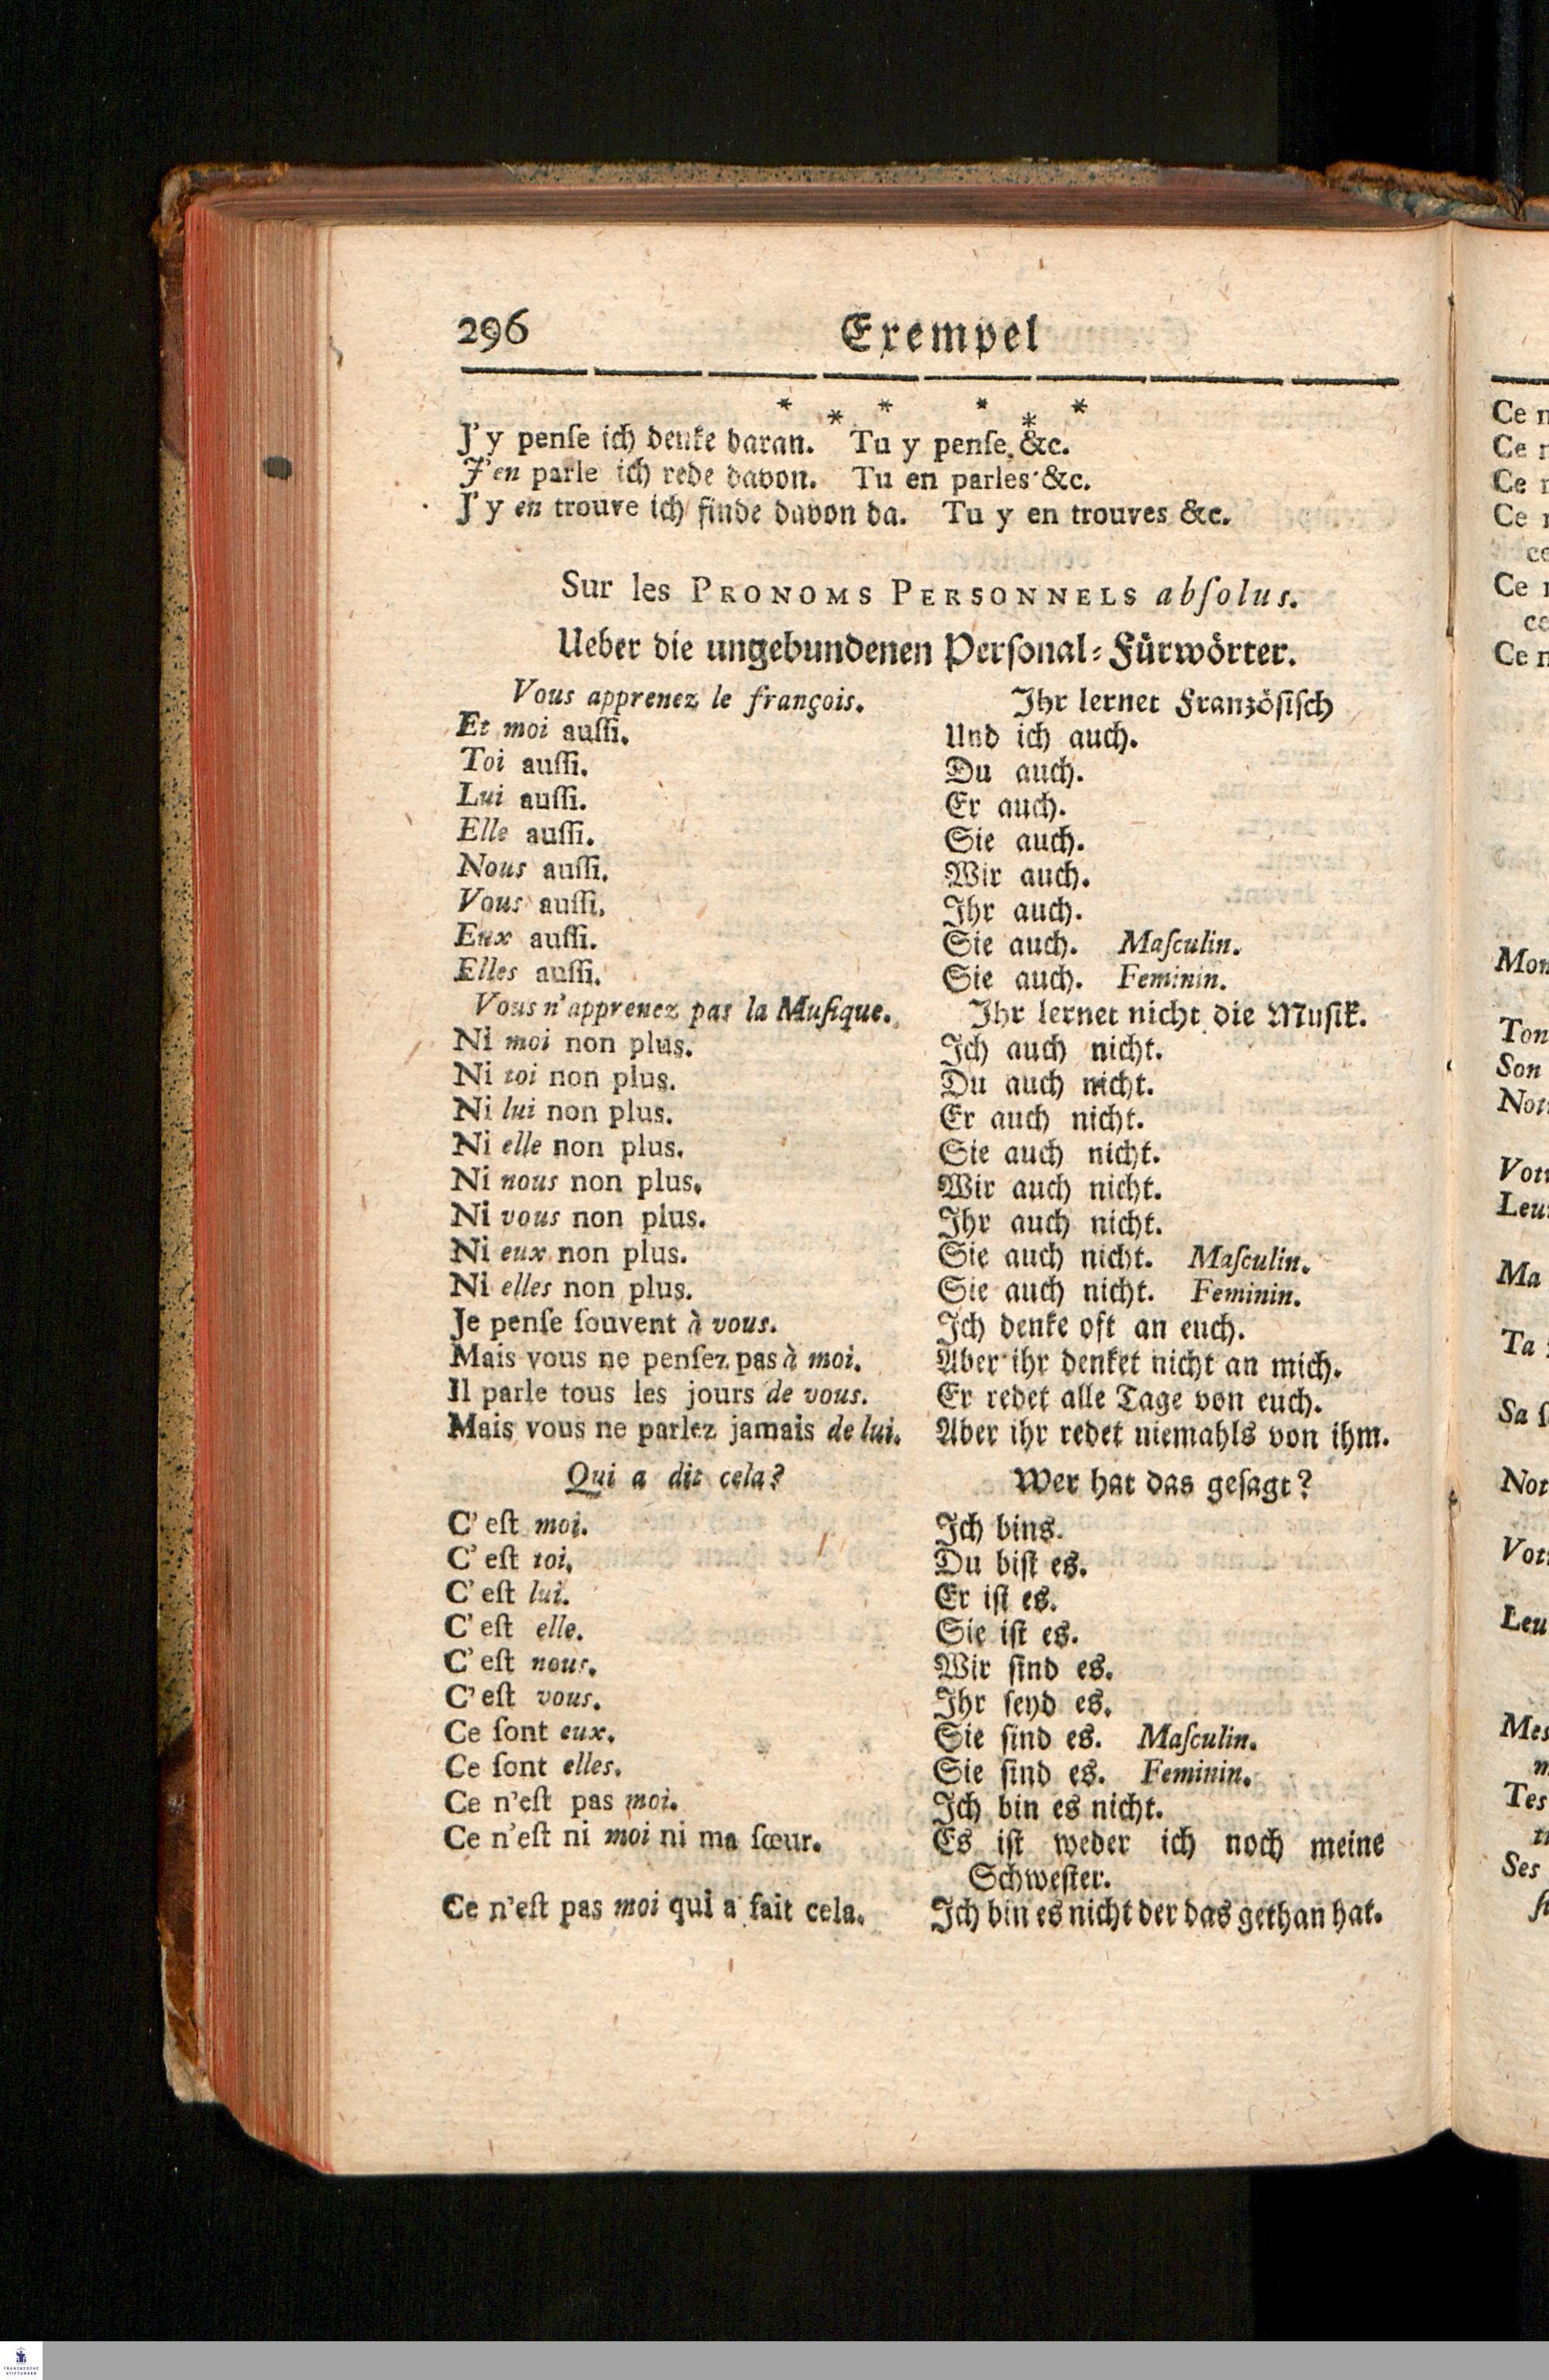 296 Exempel
* * * * * *
J'y penſe ich denke daran. Tu y penſe, &c.
J'en parle ich rede davon. Tu en parles &c.
J'y en trouve ich finde davon da. Tu y en trouves &c.
Sur les PRONOMS PERSONNELS abſolus.
Ueber die ungebundenen Perſonal-Fürwörter.
Vous apprenez le françois. Ihr lernet Franzöſiſch
Et moi auſſi. Und ich auch.
Toi auſſi. Du auch.
Lui auſſi. Er auch.
Elle auſſi. Sie auch.
Nous auſſi. Wir auch.
Vous auſſi. Ihr auch.
Eux auſſi. Sie auch. Maſculin.
Elles auſſi. Sie auch. Feminin.
Vous n'apprenez pas la Muſique. Ihr lernet nicht die Muſik.
Ni moi non plus. Ich auch nicht.
Ni toi non plus. Du auch nicht.
Ni lui non plus. Er auch nicht.
Ni elle non plus. Sie auch nicht.
Ni nous non plus. Wir auch nicht.
Ni vous non plus. Ihr auch nicht.
Ni eux non plus. Sie auch nicht. Maſculin.
Ni elles non plus. Sie auch nicht. Feminin.
Je penſe ſouvent à vous. Ich denke oft an euch.
Mais vous ne penſez pas à moi. Aber ihr denket nicht an mich.
Il parle tous les jours de vous. Er redet alle Tage von euch.
Mais vous ne parlez jamais de lui. Aber ihr redet niemahls von ihm.
Qui a dit cela? Wer hat das geſagt?
C'eſt moi. Ich bins.
C'eſt toi. Du biſt es.
C'eſt lui. Er iſt es.
C'eſt elle. Sie iſt es.
C'eſt nous. Wir ſind es.
C'eſt vous. Ihr ſeyd es.
Ce ſont eux. Sie ſind es. Maſculin.
Ce ſont elles. Sie ſind es. Feminin.
Ce n'eſt pas moi. Ich bin es nicht.
Ce n'eſt ni moi ni ma ſœur. Es iſt weder ich noch meine
Schweſter.
Ce n'eſt pas moi qui a fait cela. Ich bin es nicht der das gethan hat.
Ce
Ce
Ce
Ce
Ce
Ce
Ton
Son
Ma
Ta
Sa
Mes
Tes
Ses
FRANCKESCHE
STIFTUNGEN